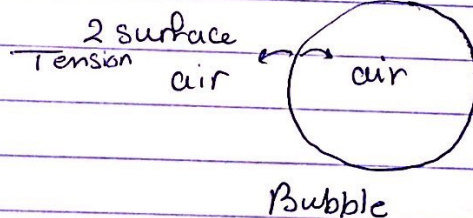 2 surface
Tension
air
air
Bubble